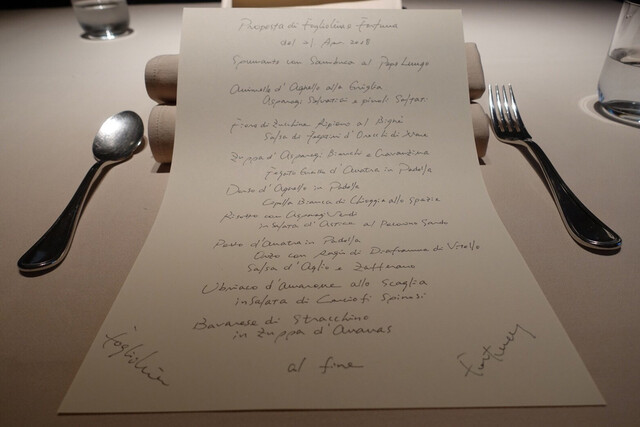 Proposta di Fogliolina e Fortuna
Apr 2018
Spumante con Sambuca al Pepe Lungo
Animelle d'Agnello alla Griglia
Asparagi Selvatici e piselli Saltati
Fiore di Zucchina Ripieno al Bignè
Salsa di Fegatini d'Oca
Zuppa d'Asparagi Bianchi e
Fegato Grasso d'Anatra in Padella
d'Agnello in Padella
Cipolla bianca di Chioggia allo Spezie
Risotto con Asparagi Verdi
insalata d'Ortica al Pecorino Sardo
Petto d'Anatra in Padella
con Ragù di Diaframma di Vitello
Salsa d'Aglio e Zafferano
Ubriaco d'Amarone alla Scaglia
insalata di Carciofi Spinosi
Bavarese di Stracchino
in Zuppa d'Ananas
al fine
Fogliolina